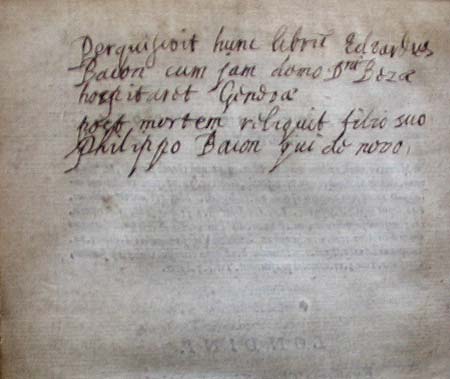 Perquisivit hunc librū Edvardus
Bacon cum jam domo Dni Bezæ
hospitaret Genevæ
post mortem reliquit filio suo
Philippo Bacon qui de novo.